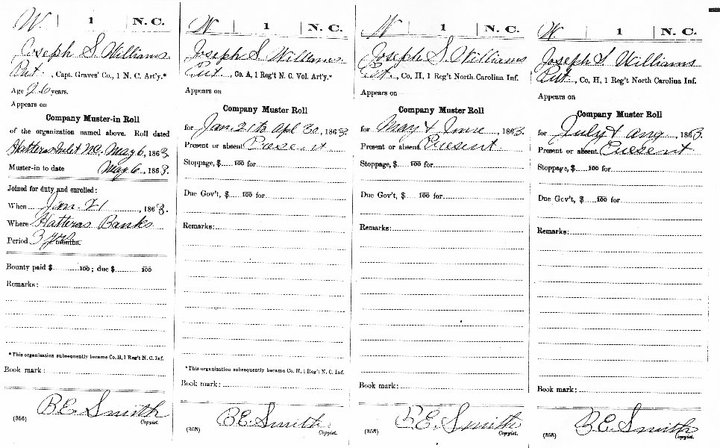 W 1 N. C.
Joseph S. Williams
Pvt., Capt. Graves' Co., 1 N. C. Art'y.*
Age 26 years.
Appears on
Company Muster-in Roll
of the organization named above. Roll dated
Hatteras Inlet NC, May 6, 1863.
Muster-in to date May 6, 1863.
Joined for duty and enrolled:
When Jan. 21, 1863.
Where Hatteras Banks
Period 3 yrs months.
Bounty paid $ 100; due $ 100
Remarks:
*This organization subsequently became Co. H, 1 Reg't N. C. Inf.
Book mark:
B.E. Smith
(356) Copyist.
W 1 N. C.
Joseph S. Williams
Pvt., Co. A, 1 Reg't N. C. Vol. Art'y.*
Appears on
Company Muster Roll
for Jan. 21 to Apl 30, 1863
Present or absent Present
Stoppage, $ 100 for
Due Gov't, $ 100 for
Remarks:
*This organization subsequently became Co. H, 1 Reg't N. C. Inf.
Book mark:
B.E. Smith
(358) Copyist.
W 1 N. C.
Joseph S. Williams
Pvt., Co. H, 1 Reg't North Carolina Inf.
Appears on
Company Muster Roll
for May & June, 1863
Present or absent Present
Stoppage, $ 100 for
Due Gov't, $ 100 for
Remarks:
Book mark:
B.E. Smith
(358) Copyist.
W 1 N. C.
Joseph S. Williams
Pvt., Co. H, 1 Reg't North Carolina Inf.
Appears on
Company Muster Roll
for July & Aug, 1863.
Present or absent Present
Stoppage, $ 100 for
Due Gov't, $ 100 for
Remarks:
Book mark:
B.E. Smith
(358) Copyist.